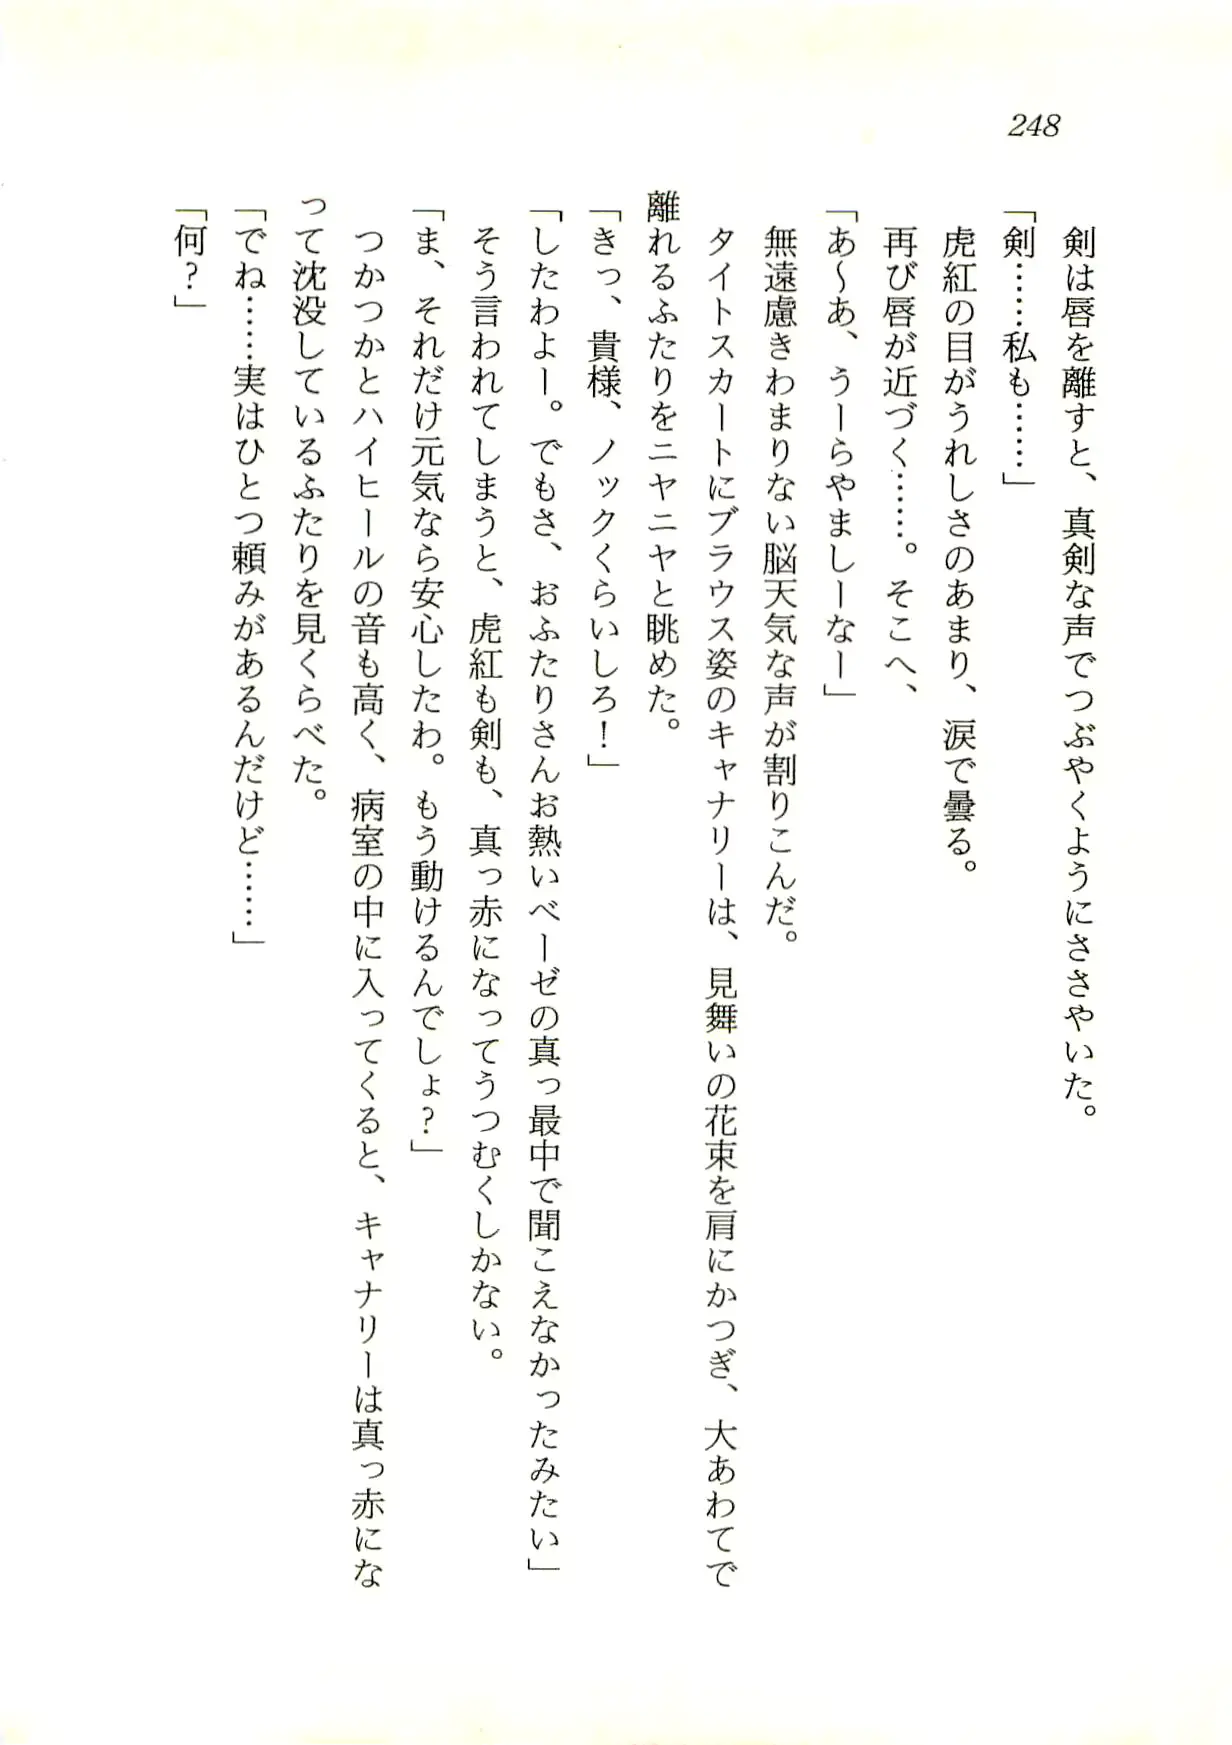 248
剣は唇を離すと、真剣な声でつぶやくようにささやいた。
「剣……私も……」
虎紅の目がうれしさのあまり、涙で曇る。
再び唇が近づく……。そこへ、
「あ〜あ、うーらやましーなー」
無遠慮きわまりない脳天気な声が割りこんだ。
タイトスカートにブラウス姿のキャナリーは、見舞いの花束を肩にかつぎ、大あわてで
離れるふたりをニヤニヤと眺めた。
「きっ、貴様、ノックくらいしろ！」
「したわよー。でもさ、おふたりさんお熱いベーゼの真っ最中で聞こえなかったみたい」
そう言われてしまうと、虎紅も剣も、真っ赤になってうつむくしかない。
「ま、それだけ元気なら安心したわ。もう動けるんでしょ？」
つかつかとハイヒールの音も高く、病室の中に入ってくると、キャナリーは真っ赤にな
って沈没しているふたりを見くらべた。
「でね……実はひとつ頼みがあるんだけど……」
「何？」